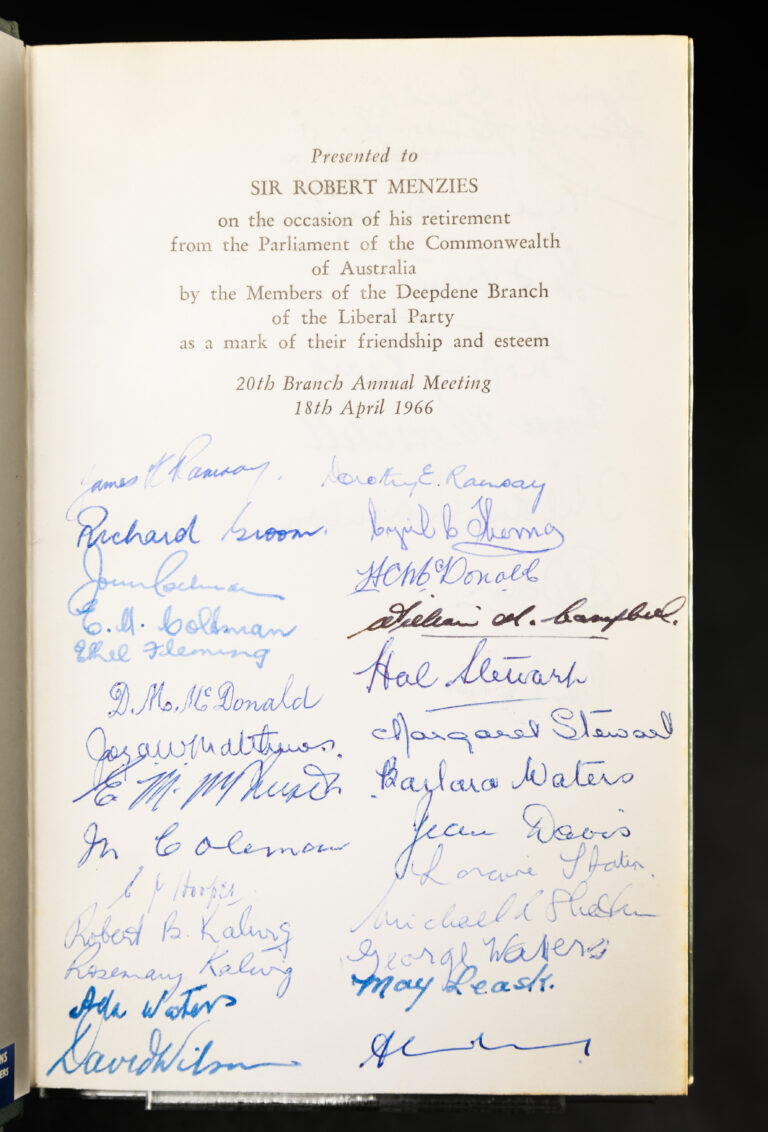 Presented to
SIR ROBERT MENZIES
on the occasion of his retirement
from the Parliament of the Commonwealth
of Australia
by the Members of the Deepdene Branch
of the Liberal Party
as a mark of their friendship and esteem
20th Branch Annual Meeting
18th April 1966
James Ramsay. Dorothy E. Ramsay
Richard Groom. Cyril
H C McDonald
E. M. Coltman William M. Campbell.
Ethel Fleming
D. M. McDonald Hal Stewart
Matthews. Margaret Stewart
E. M. Barbara Waters
M Coleman Jean Davis
Hooper Loraine
Robert B. Michael
Rosemary George Waters
Ada Waters May Leask.
David Wilson